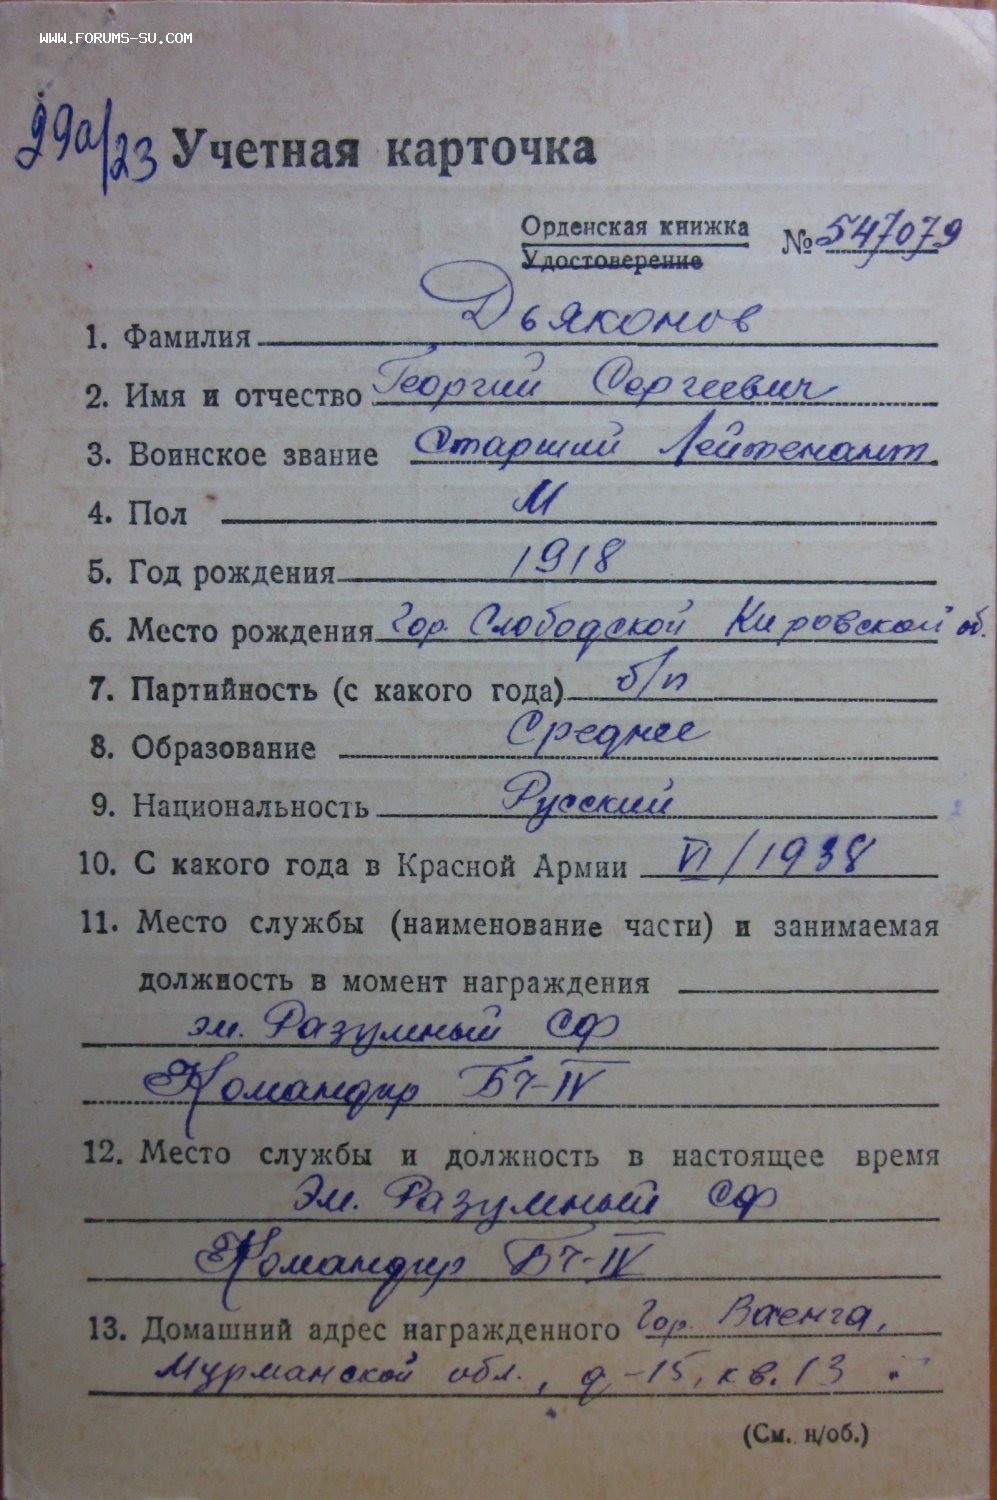 WWW.FORUMS-SU.COM
99а/23 Учетная карточка
Орденская книжка
Удостоверение
№ 547079
1. Фамилия Дьяконов
2. Имя и отчество Георгий Сергеевич
3. Воинское звание Старший Лейтенант
4. Пол М
5. Год рождения 1918
6. Место рождения Гор. Слободской Кировской об.
7. Партийность (с какого года) б/п
8. Образование Среднее
9. Национальность Русский
10. С какого года в Красной Армии VI/1938
11. Место службы (наименование части) и занимаемая
должность в момент награждения
эм. Разумный СФ
Командир БЧ-IV
12. Место службы и должность в настоящее время
Эм. Разумный СФ
Командир БЧ-IV
13. Домашний адрес награжденного Гор. Ваенга,
Мурманской обл., д-15, кв. 13
(См. н/об.)